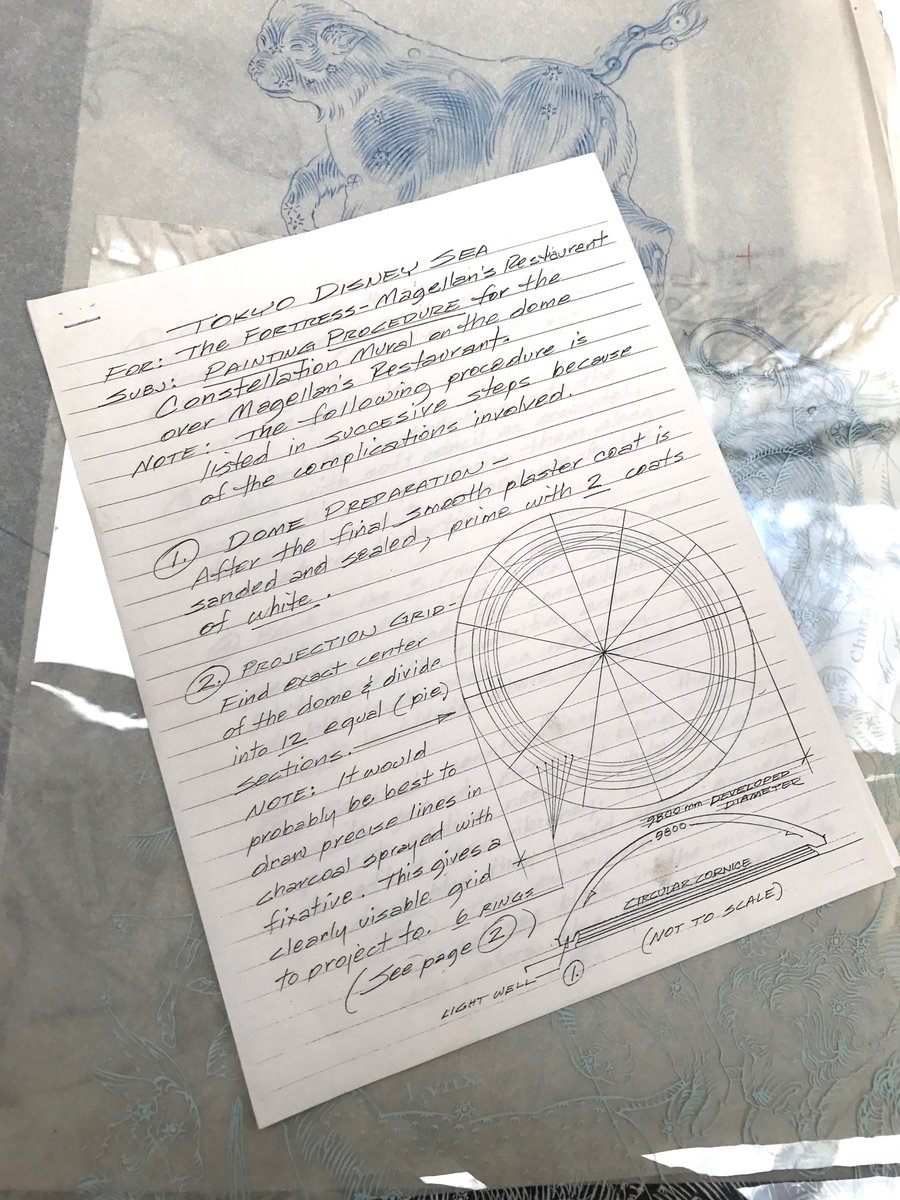 TOKYO DISNEY SEA
FOR: THE FORTRESS - Magellan's Restaurant
SUBJ: PAINTING PROCEDURE for the
Constellation Mural on the dome
over Magellan's Restaurant.
NOTE: The following procedure is
listed in succesive steps because
of the complications involved.
1. DOME PREPARATION -
After the final smooth plaster coat is
sanded and sealed, prime with 2 coats
of white.
2. PROJECTION GRID -
Find exact center
of the dome & divide
into 12 equal (pie)
sections.
NOTE: It would
probably be best to
draw precise lines in
charcoal sprayed with
fixative. This gives a
clearly visable grid
to project to.
(See page 2)
6 RINGS
9800 mm DEVELOPED
DIAMETER
9800
CIRCULAR CORNICE
(NOT TO SCALE)
LIGHT WELL
1.
Lynx